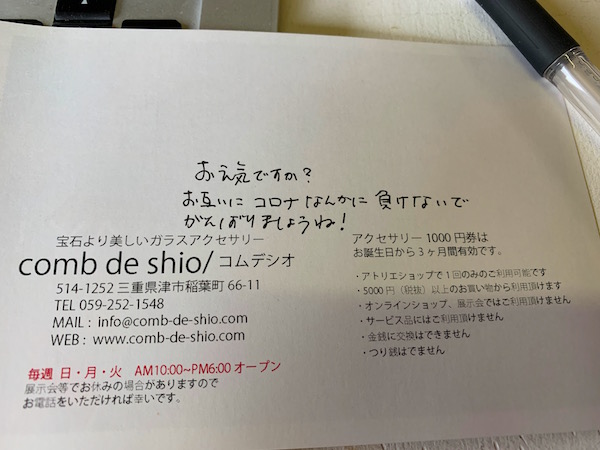 お元気ですか?
お互いに コロナなんかに 負けないで
がんばりましょうね!
宝石より美しいガラスアクセサリー
comb de shio/コムデシオ
514-1252 三重県津市稲葉町 66-11
TEL 059-252-1548
MAIL : info@comb-de-shio.com
WEB : www.comb-de-shio.com
毎週 日・月・火 AM10:00~PM6:00 オープン
展示会等でお休みの場合がありますので
お電話をいただければ幸いです。
アクセサリー 1000 円券は
お誕生日から 3 ヶ月間有効です。
・アトリエショップで 1 回のみのご利用可能です
・5000 円(税抜)以上のお買い物から利用頂けます
・オンラインショップ、展示会ではご利用頂けません
・サービス品にはご利用頂けません
・金銭に交換はできません
・つり銭はでません